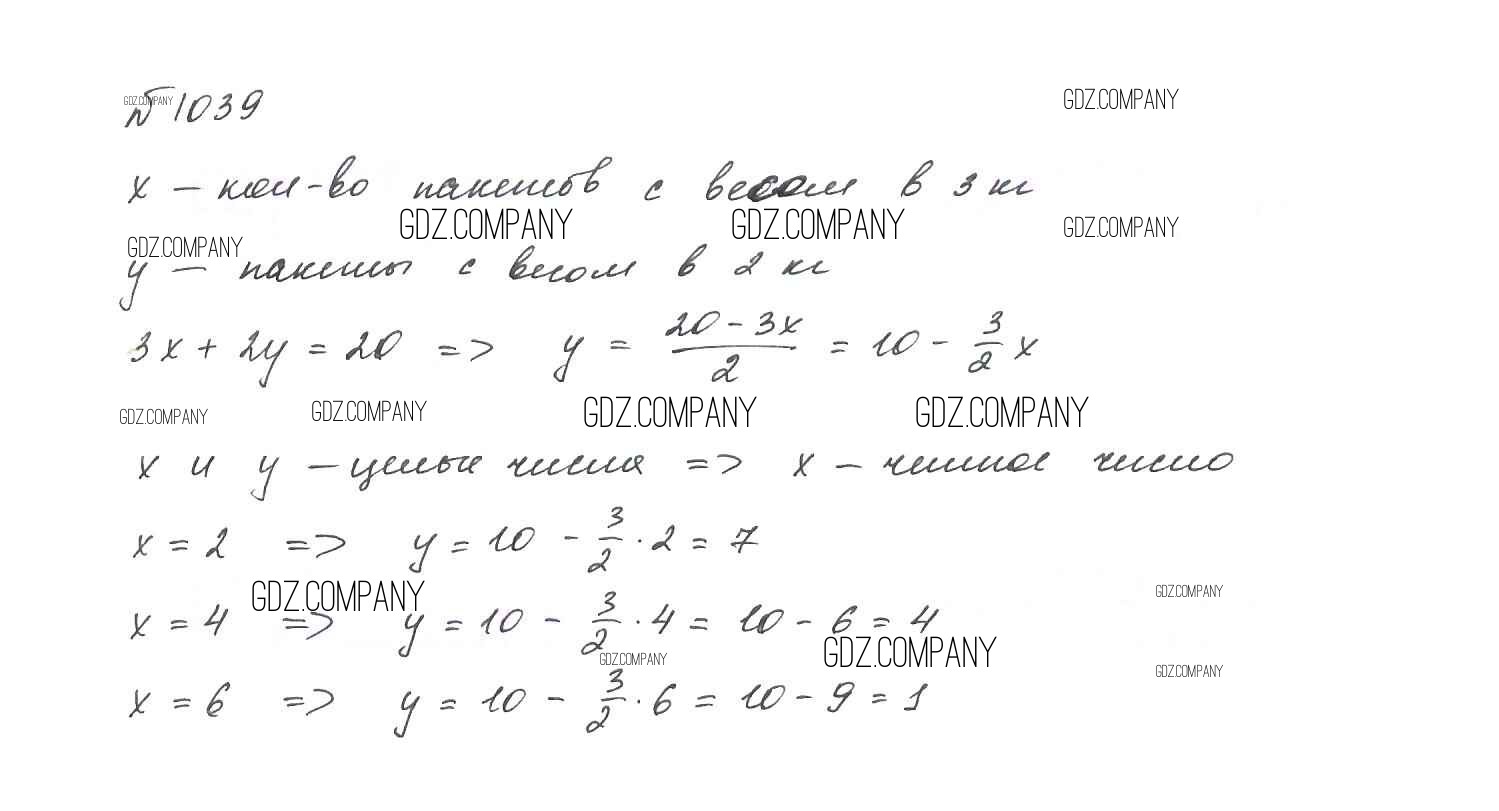 GDZ.COMPANY
№1039
GDZ.COMPANY
x – кол-во пакетов с весом в 3 кг
GDZ.COMPANY GDZ.COMPANY GDZ.COMPANY
GDZ.COMPANY
y – пакеты с весом в 2 кг
3x + 2y = 20 => y = (20 - 3x)/2 = 10 - 3/2 x
GDZ.COMPANY GDZ.COMPANY GDZ.COMPANY GDZ.COMPANY
x и y – целые числа => x – четное число
x = 2 => y = 10 - 3/2 · 2 = 7
GDZ.COMPANY GDZ.COMPANY
x = 4 => y = 10 - 3/2 · 4 = 10 - 6 = 4
GDZ.COMPANY GDZ.COMPANY GDZ.COMPANY
x = 6 => y = 10 - 3/2 · 6 = 10 - 9 = 1